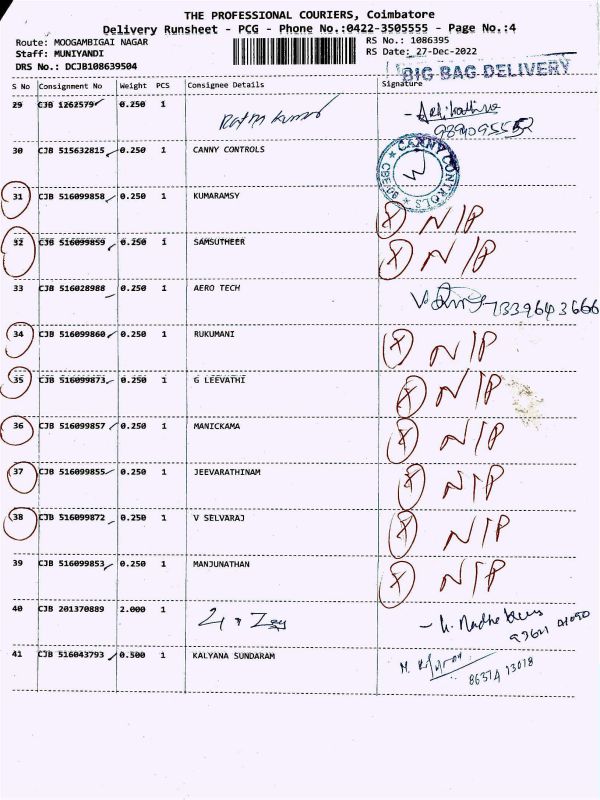 THE PROFESSIONAL COURIERS, Coimbatore
Delivery Runsheet - PCG - Phone No.:0422-3505555 - Page No.:4
Route: MOOGAMBIGAI NAGAR
Staff: MUNIYANDI
DRS No.: DCJB108639504
RS No.: 1086395
RS Date: 27-Dec-2022
BIG BAG DELIVERY
S No Consignment No Weight PCS Consignee Details Signature
29 CJB 1262579 0.250 1
30 CJB 515632815 0.250 1 CANNY CONTROLS
CANNY CONTROLS
31 CJB 516099858 0.250 1 KUMARAMSY X N/P
32 CJB 516099859 0.250 1 SAMSUTHEER X N/P
33 CJB 516028988 0.250 1 AERO TECH 7339643666
34 CJB 516099860 0.250 1 RUKUMANI X N/P
35 CJB 516099873 0.250 1 G LEEVATHI X N/P
36 CJB 516099857 0.250 1 MANICKAMA X N/P
37 CJB 516099855 0.250 1 JEEVARATHINAM X N/P
38 CJB 516099872 0.250 1 V SELVARAJ X N/P
39 CJB 516099853 0.250 1 MANJUNATHAN X N/P
40 CJB 201370889 2.000 1
41 CJB 516043793 0.500 1 KALYANA SUNDARAM 86374 13018